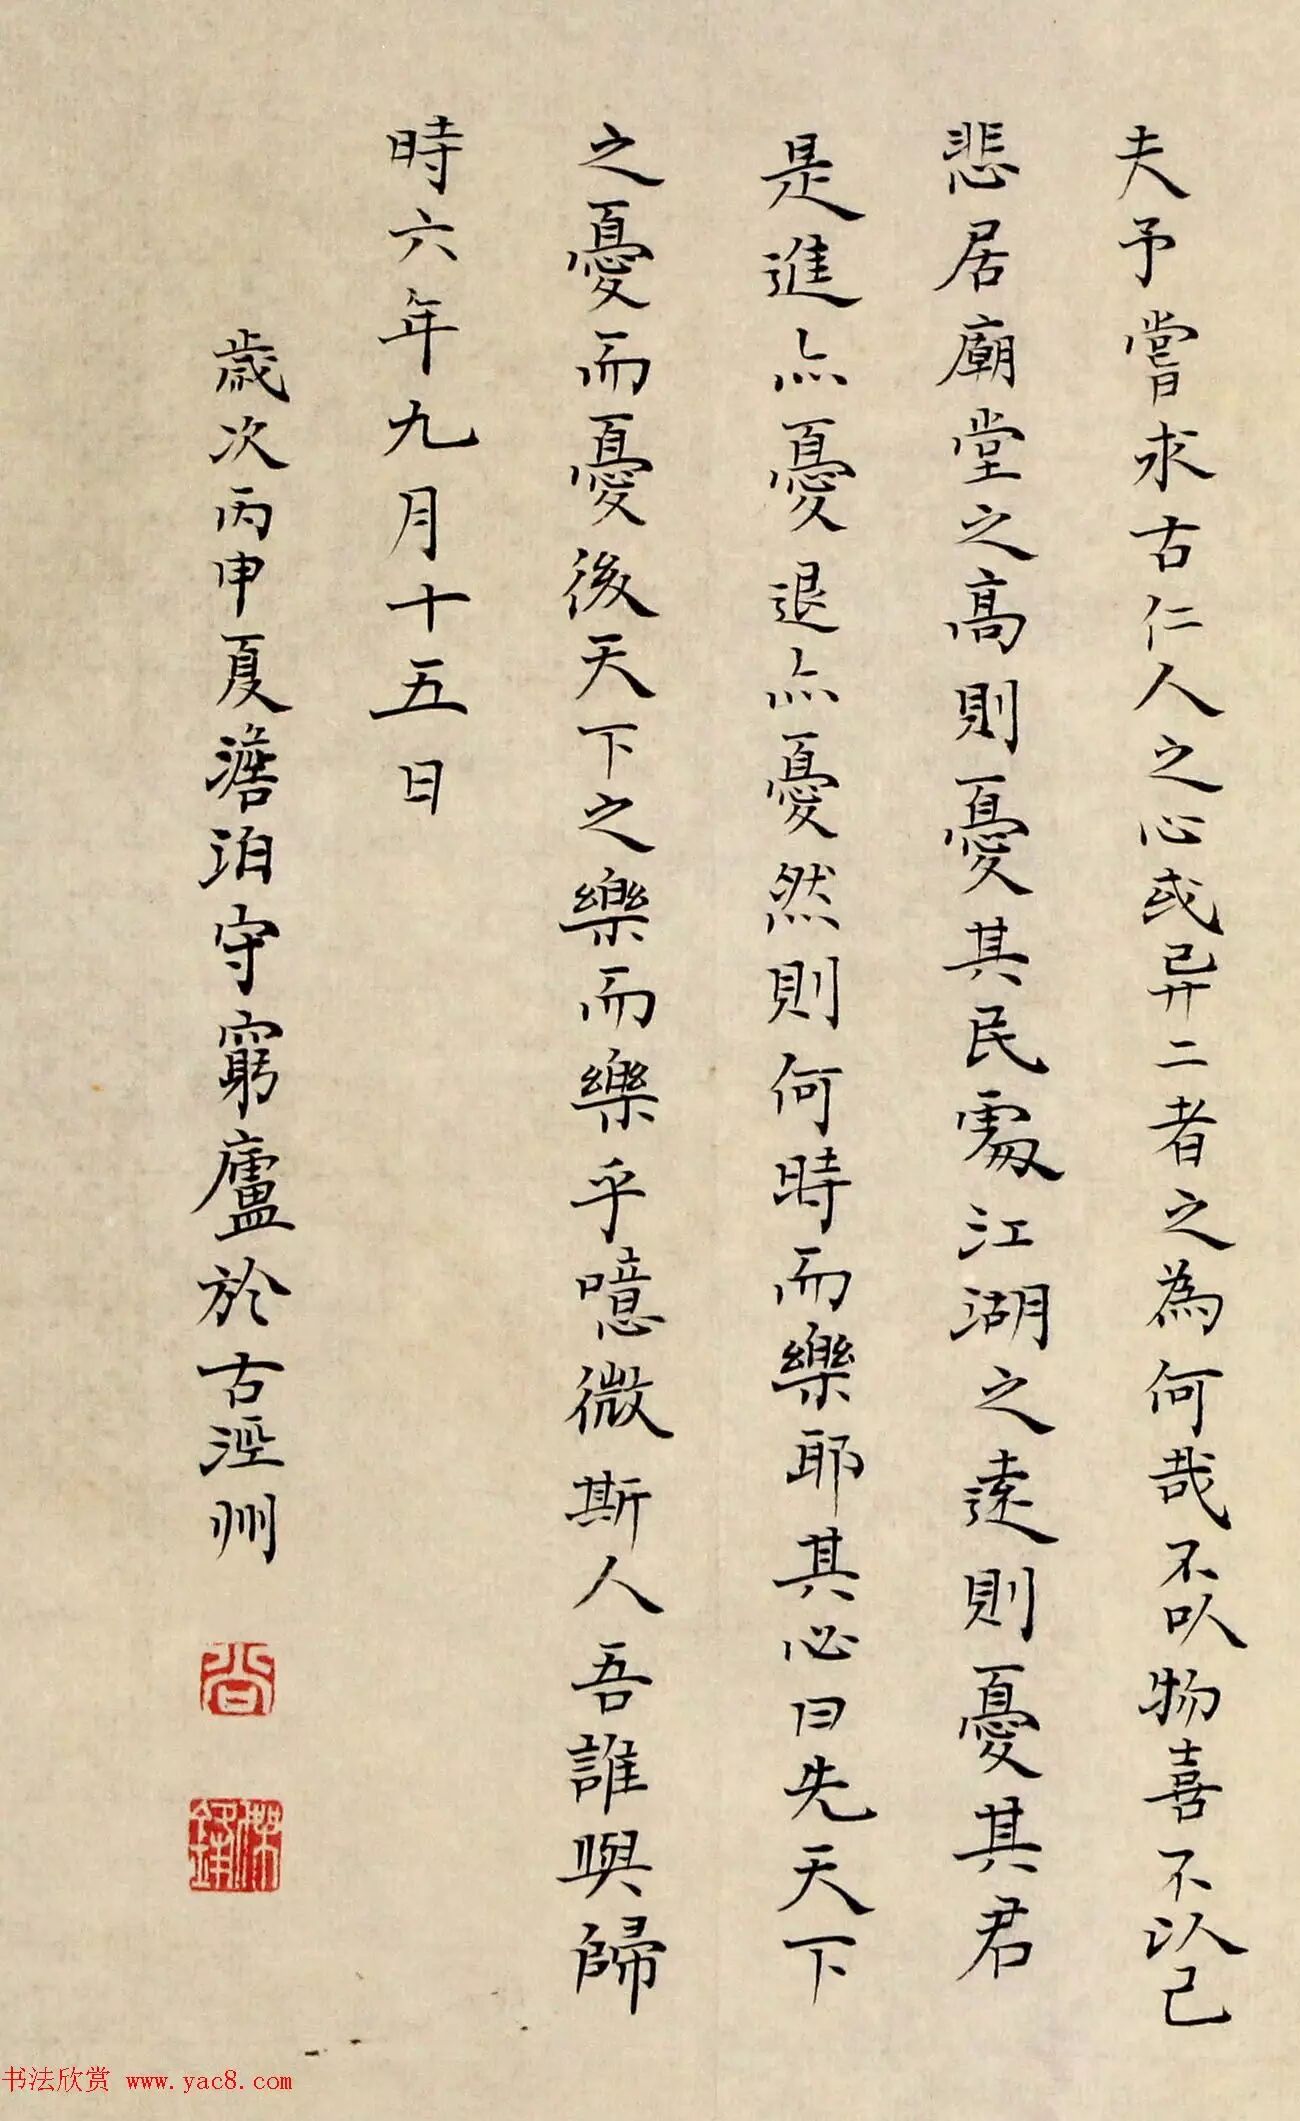 夫予嘗求古仁人之心或异二者之為何哉不以物喜不以己
悲居廟堂之高則憂其民處江湖之遠則憂其君
是進亦憂退亦憂然則何時而樂耶其必曰先天下
之憂而憂後天下之樂而樂乎噫微斯人吾誰與歸
時六年九月十五日
歲次丙申夏澹泊守窮廬於古涇州
书法欣赏 www.yac8.com